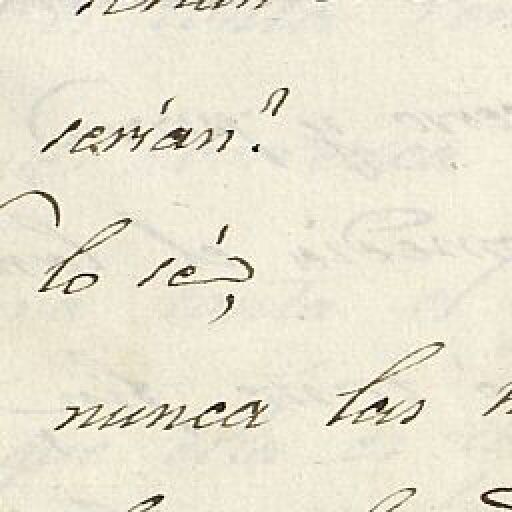 serían?
lo sé,
nunca las